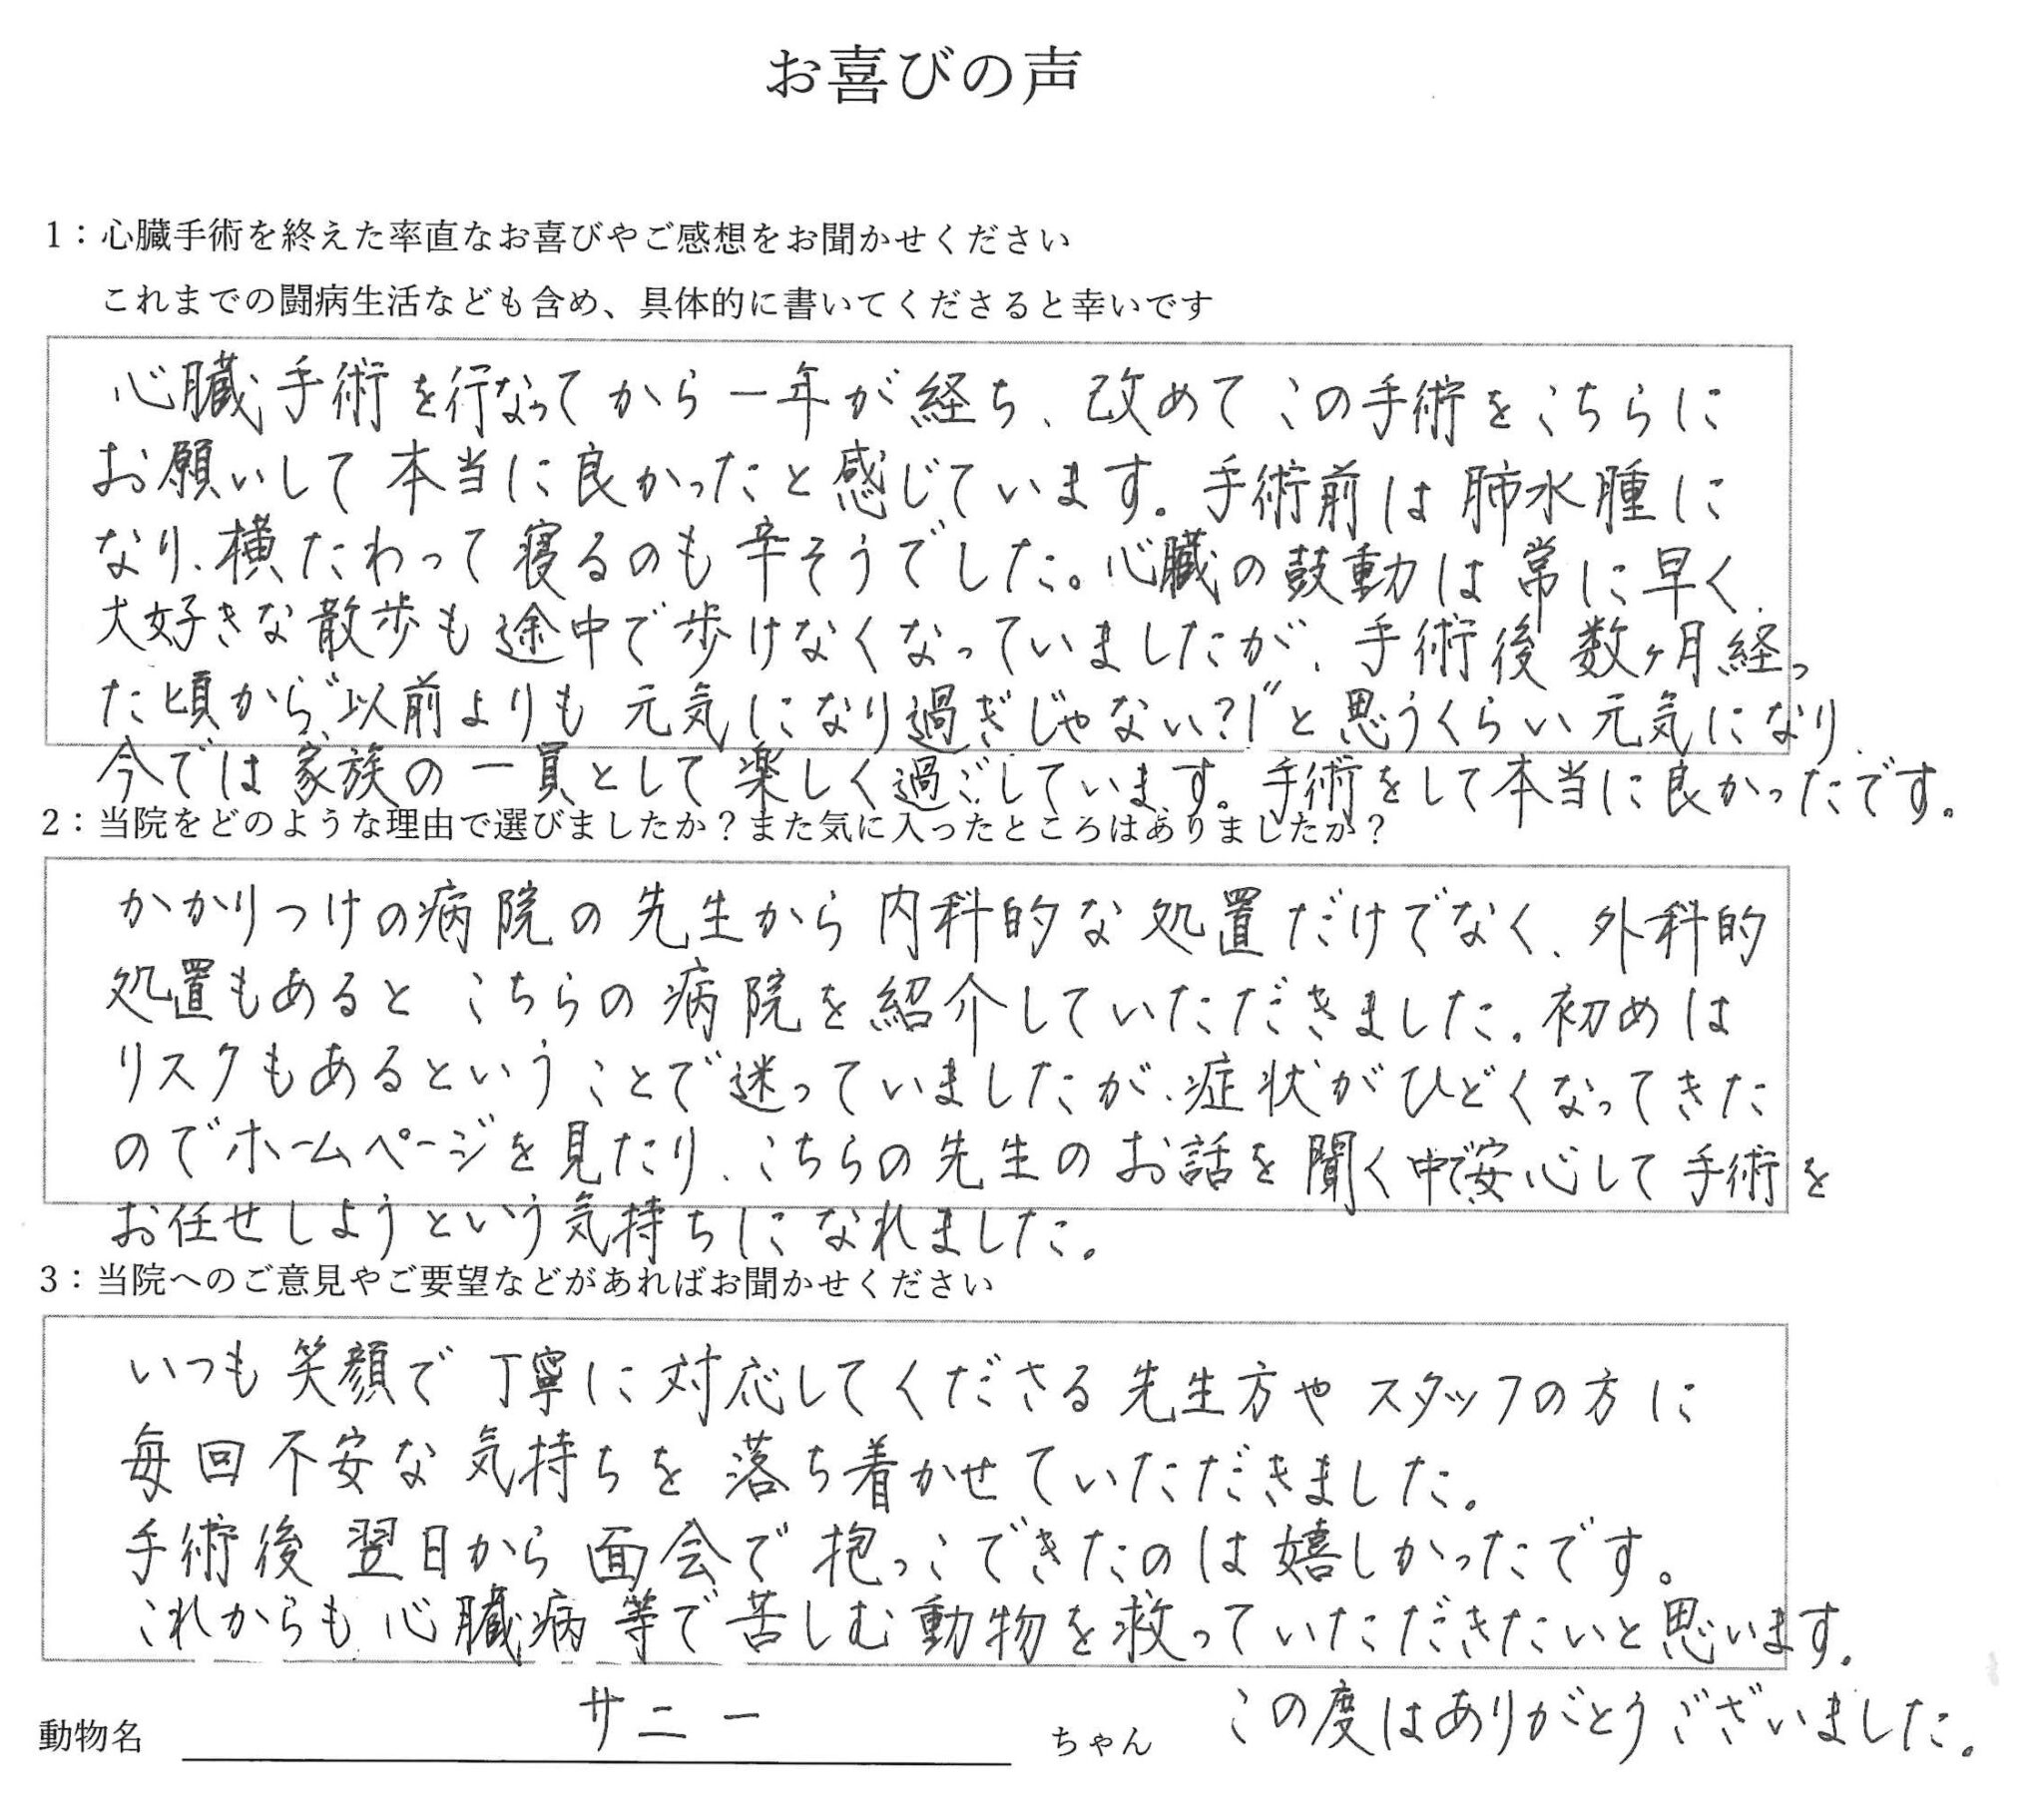 お喜びの声
1：心臓手術を終えた率直なお喜びやご感想をお聞かせください
これまでの闘病生活なども含め、具体的に書いてくださると幸いです
心臓手術を行なってから一年が経ち、改めてこの手術をこちらに
お願いして本当に良かったと感じています。手術前は肺水腫に
なり、横たわって寝るのも辛そうでした。心臓の鼓動は常に早く、
大好きな散歩も途中で歩けなくなっていましたが、手術後数ヶ月経っ
た頃から"以前よりも元気になり過ぎじゃない?!"と思うくらい元気になり、
今では家族の一員として楽しく過ごしています。手術をして本当に良かったです。
2：当院をどのような理由で選びましたか？また気に入ったところはありましたか？
かかりつけの病院の先生から内科的な処置だけでなく、外科的
処置もあるとこちらの病院を紹介していただきました。初めは
リスクもあるということで迷っていましたが、症状がひどくなってきた
のでホームページを見たり、こちらの先生のお話を聞く中で安心して手術を
お任せしようという気持ちになれました。
3：当院へのご意見やご要望などがあればお聞かせください
いつも笑顔で丁寧に対応してくださる先生方やスタッフの方に
毎回不安な気持ちを落ち着かせていただきました。
手術後翌日から面会で抱っこできたのは嬉しかったです。
これからも心臓病等で苦しむ動物を救っていただきたいと思います。
この度はありがとうございました。
動物名 サニー ちゃん